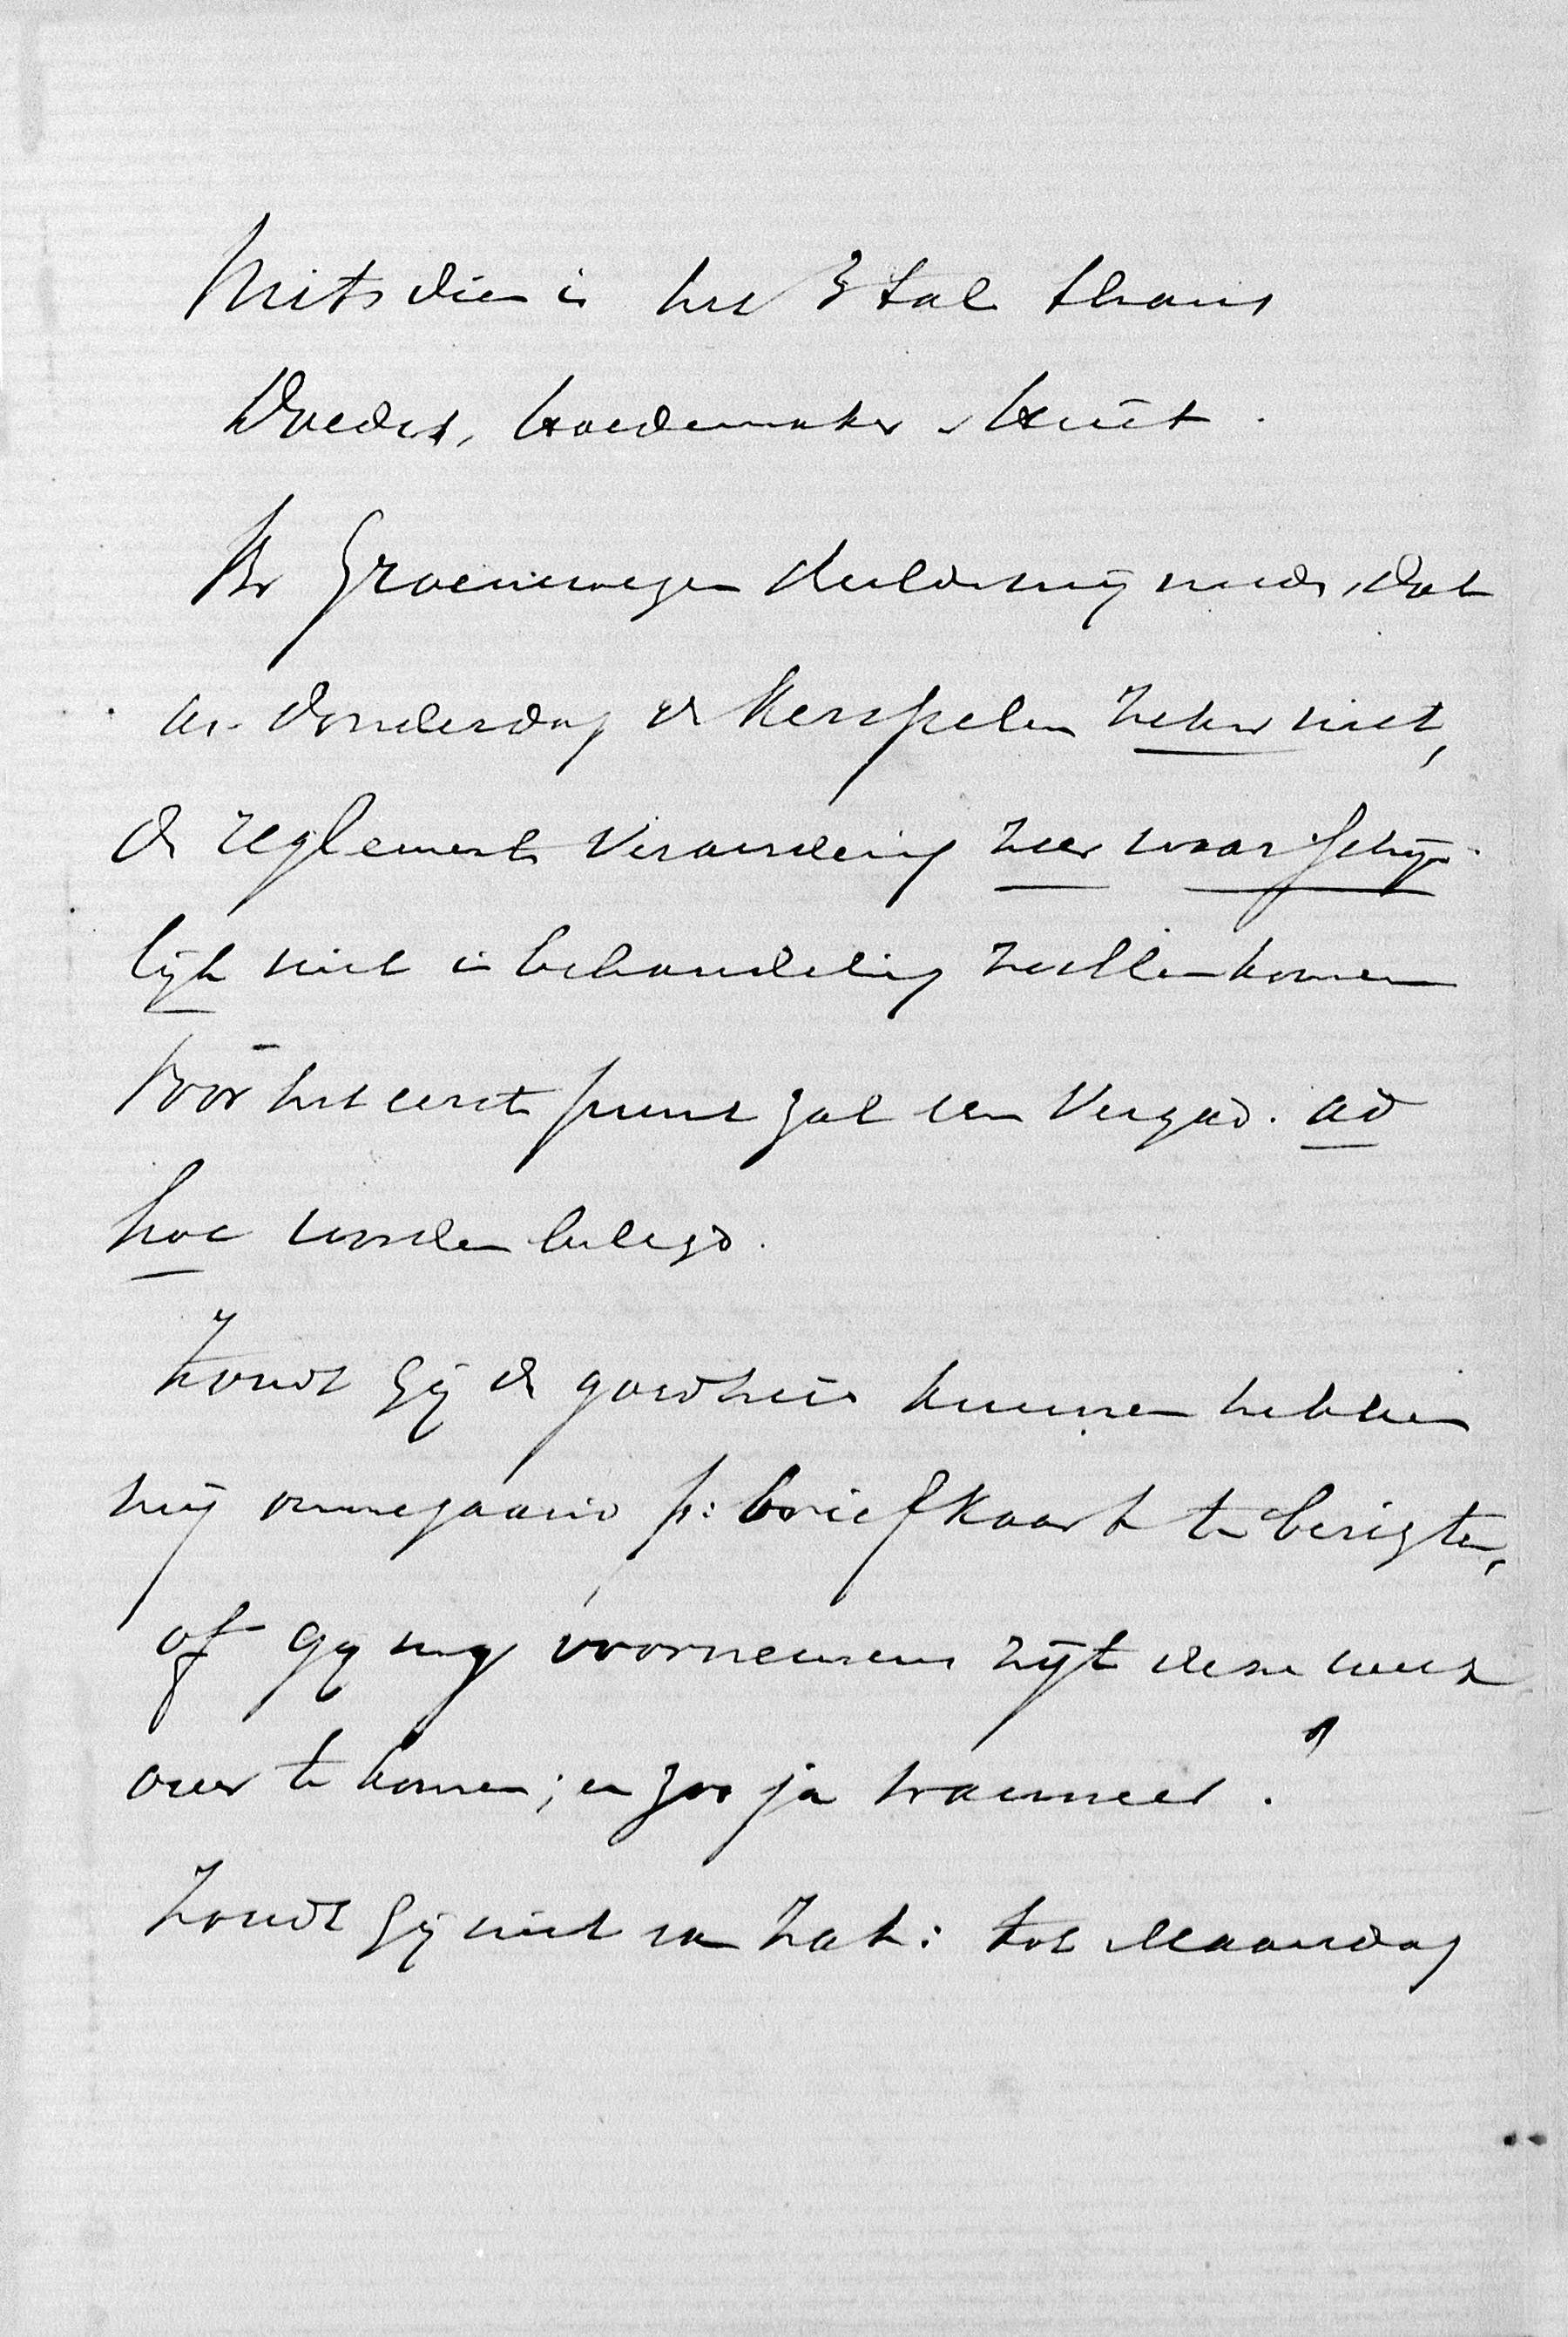 Mitsdien is het 3tal thans
Doedes, Hoedemaker & Huët.
Br Groenewegen deelde mij mede, dat
a.s. donderdag de Kerspelen zeker niet,
de reglements verandering zeer waarschijn-
lijk niet in behandeling zullen komen
Voor het eerste punt zal een Vergad. ad
hoc worden belegd.
Zoudt Gij de goedheid kunnen hebben
mij ommegaand p: briefkaart te berigten,
of Gij nog voornemens zijt deze week
over te komen; en zoo ja wanneer?
Zoudt Gij niet van Zat: tot Maandag